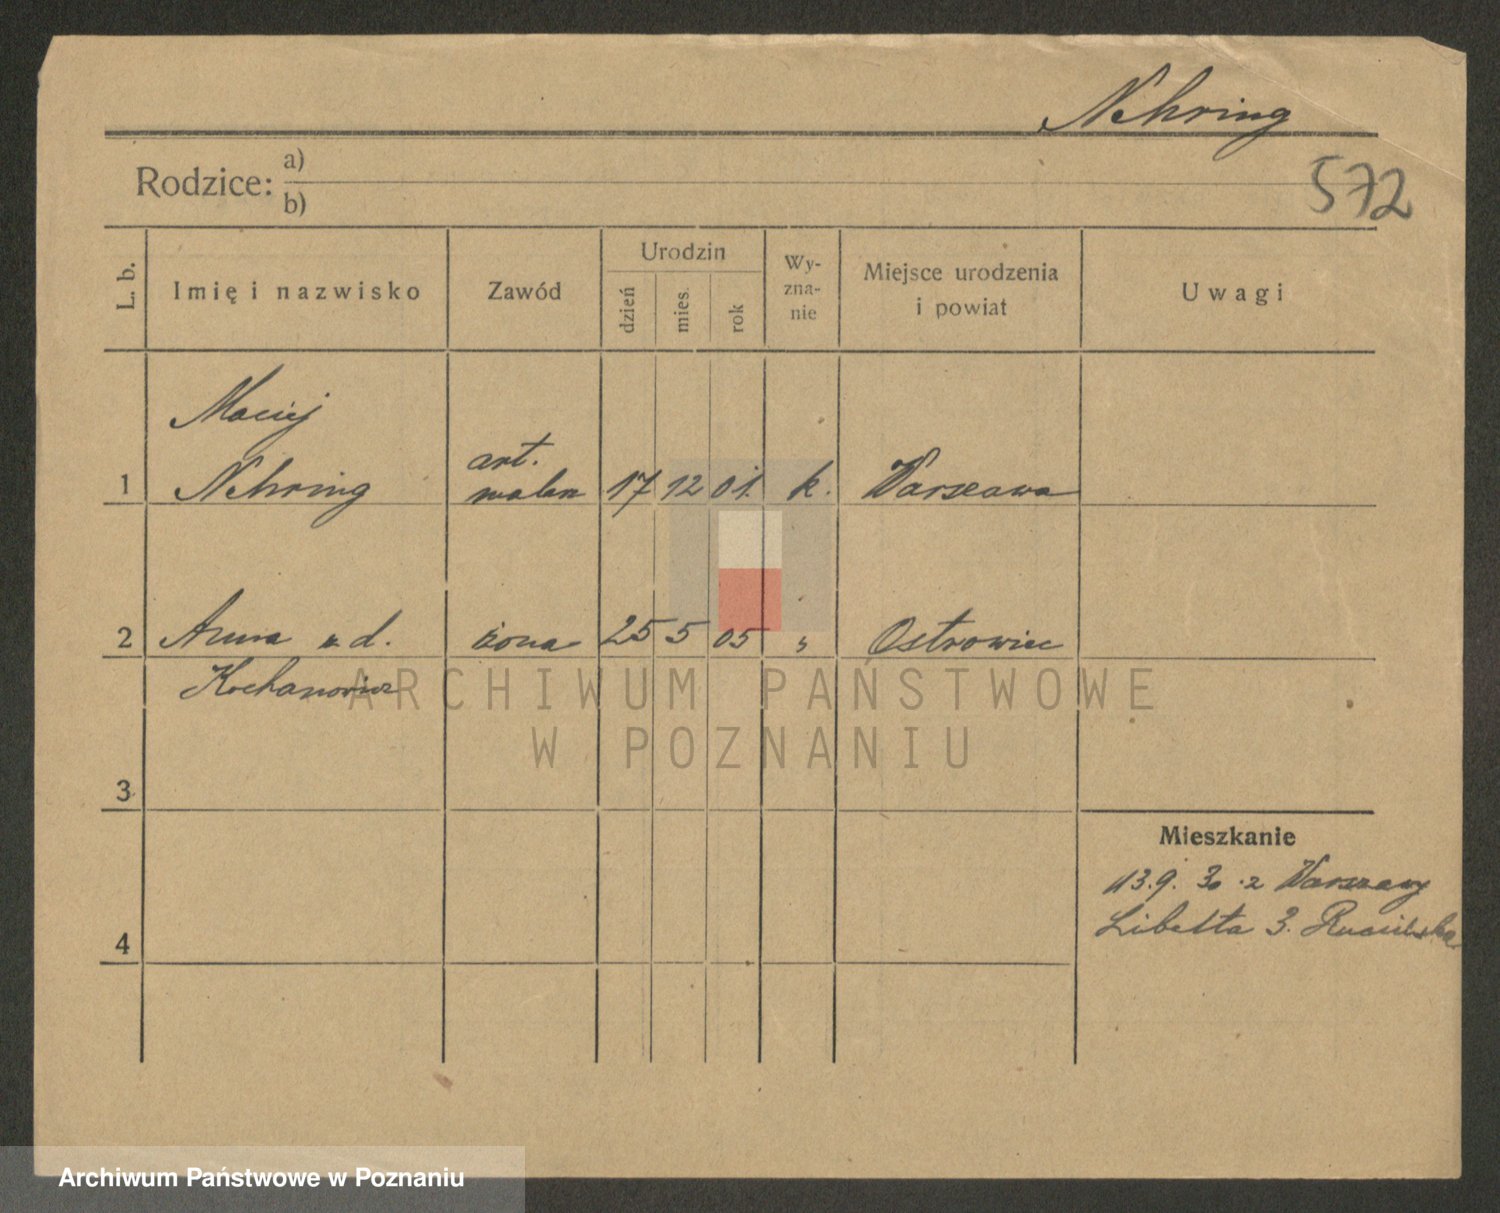 Nehring
572
Rodzice: a)
b)
L. b.
Imię i nazwisko
Zawód
Urodzin
dzień
mies.
rok
Wy-
zna-
nie
Miejsce urodzenia
i powiat
Uwagi
Maciej
1 Nehring art. malarz 17 12 01. k. Warszawa
2 Anna z d. żona 25 5 05 " Ostrowiec
Kochanowicz
3
4
Mieszkanie
13.9. 30 z Warszawy
Libelta 3.
ARCHIWUM PAŃSTWOWE
W POZNANIU
Archiwum Państwowe w Poznaniu